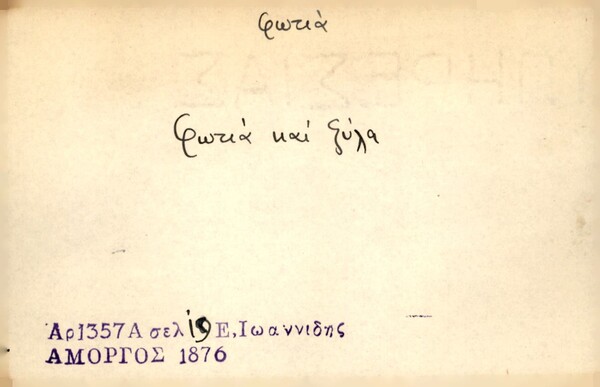 φωτιά
Φωτιά καί ξύλα
Αρ1357Α σελ 19 Ε, Ιωαννιδης
ΑΜΟΡΓΟΣ 1876